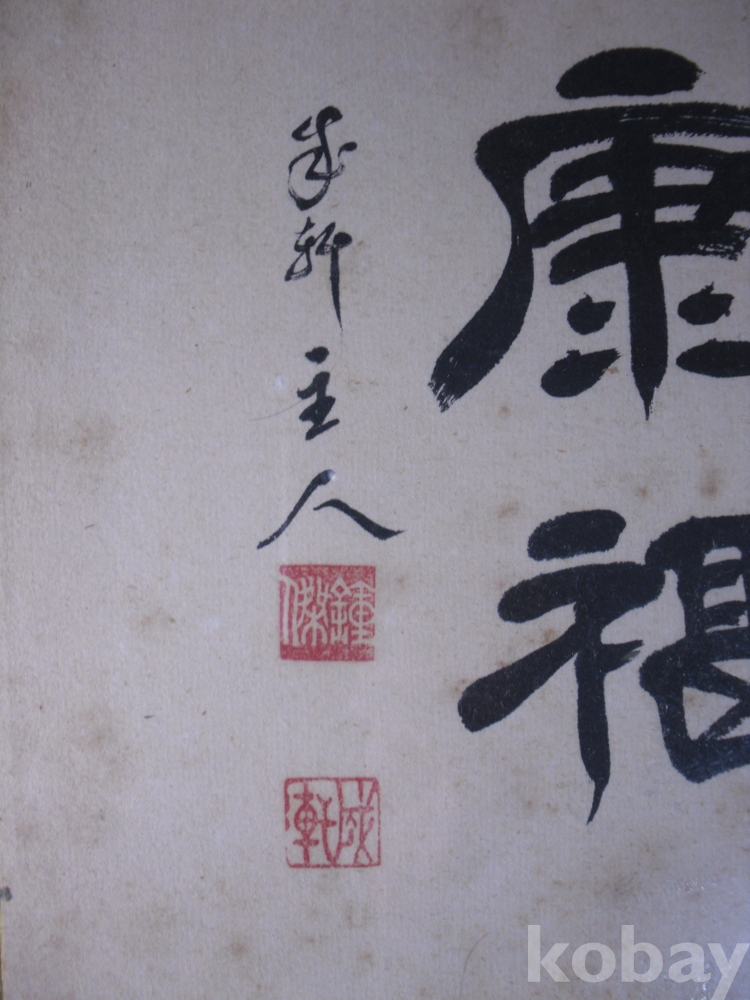 康福
成軒主人
鍾傑
成軒
kobay